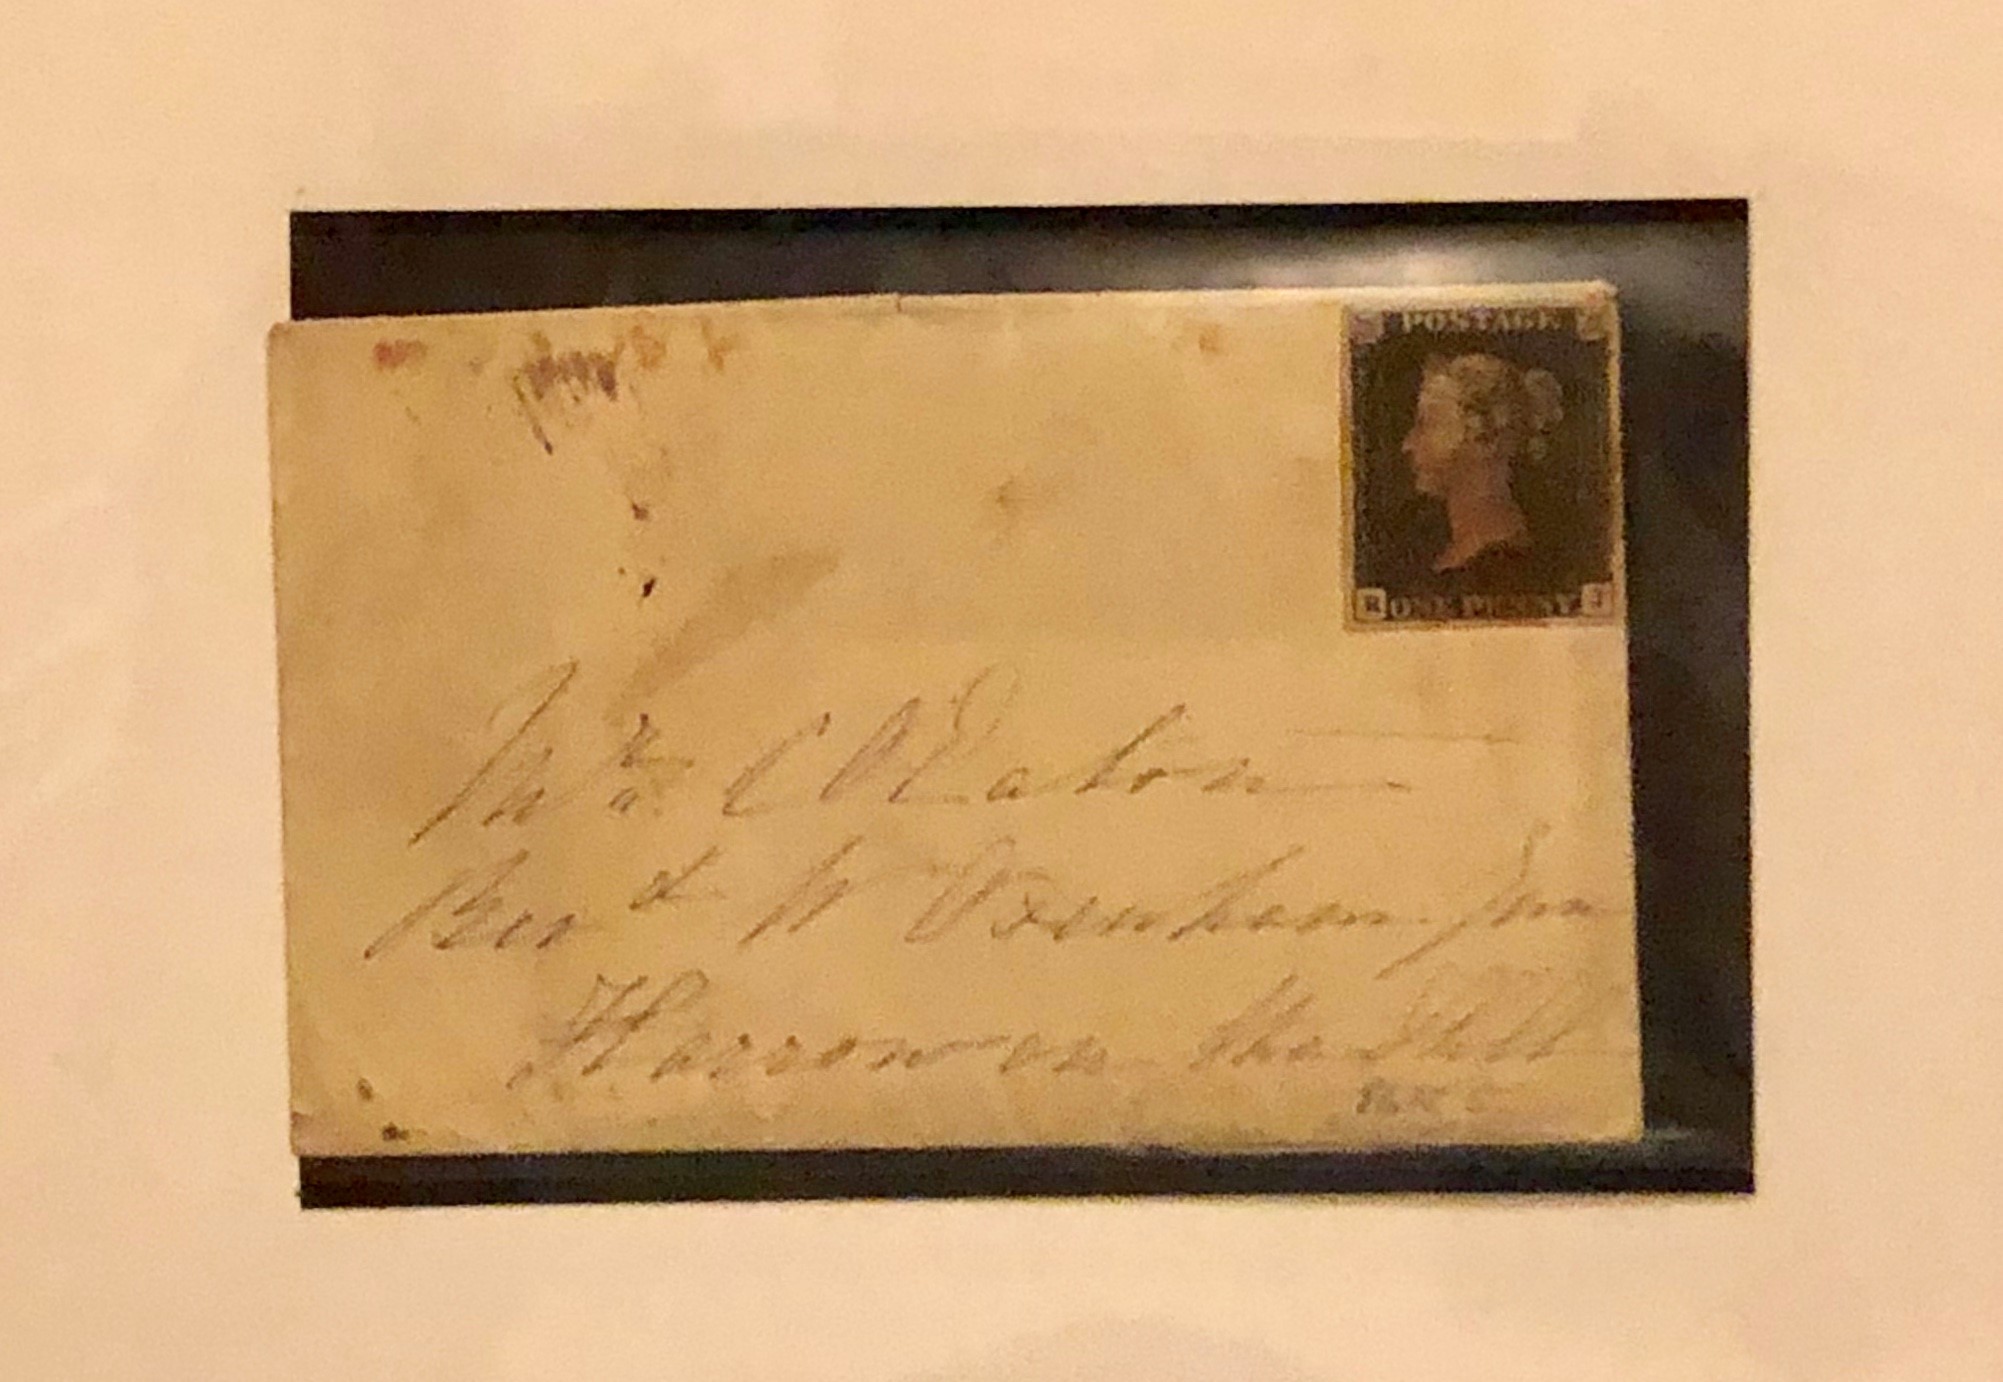 POSTAGE
R ONE PENNY J
Mr. C O Eaton
Revd W Oxenham Jun
Harrow on the Hill